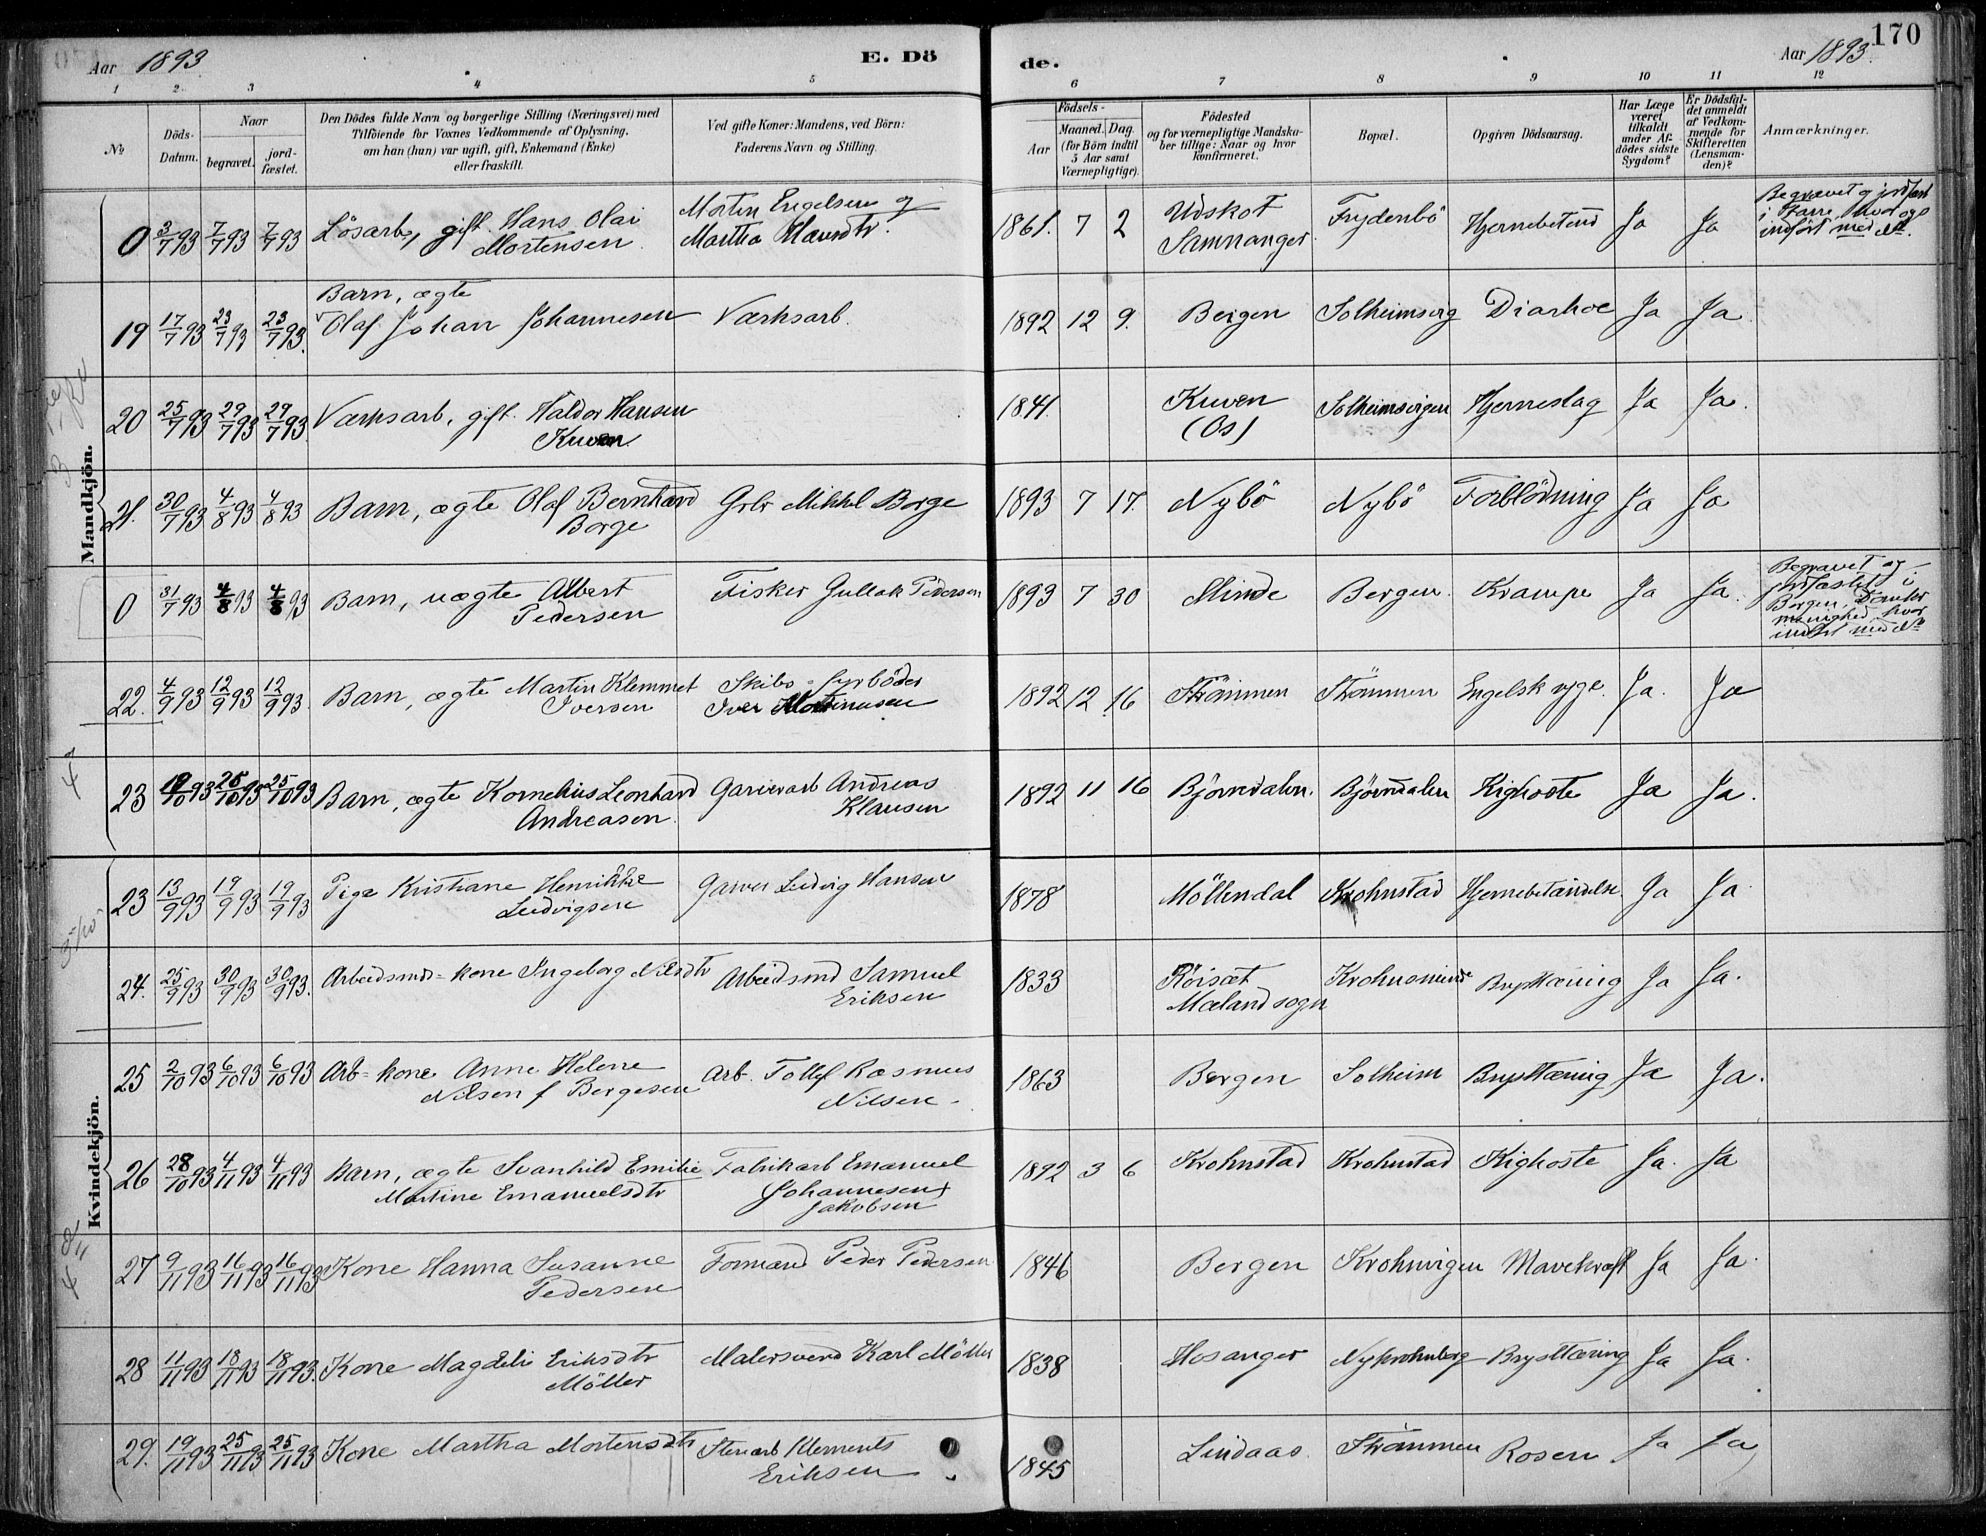 Aar 1893
E. Dö
de.
Aar 1893.
170
1 2. 3 4 5 6 7 8 9 10 11 12
№
Döds-
Datum.
Naar
begravet.
jord-
fæstet.
Den Dödes fulde Navn og borgerlige Stilling (Næringsvei) med
Tilföiende for Voxnes Vedkommende af Oplysning,
om han (hun) var ugift, gift, Enkemand (Enke)
eller fraskilt.
Ved gifte Koner: Mandens, ved Börn:
Faderens Navn og Stilling.
Födsels-
Aar
Maaned. Dag
(for Börn indtil
5 Aar samt
Værnepligtige).
Födested
og for værnepligtige Mandska-
ber tillige: Naar og hvor
konfirmeret.
Bopæl.
Opgiven Dödsaarsag.
Har Læge
været
tilkaldt
under Af-
dödes sidste
Sygdom?
Er Dödsfal-
det anmeldt
af Vedkom-
mende for
Skifteretten
(Lensman-
den)?
Anmærkninger.
Mandkjön.
0 3/7 93 7/7 93 7/7 93 Lösarb, gift. Hans Olai
Mortensen.
Morten Engelsen og
Martha Hansdtr.
1861. 7 2 Udskot
Samnanger Frydenbö Hjernebetænd Ja Ja
Begravet og jordfæst
i Aarre, hvor og
indfört med №.
19 17/7 93 23/7 93 23/7 93. Barn, ægte
Olaf Johan Johannesen Værksarb. 1892 12 9. Bergen Solheimsvig Diarhoe Ja Ja.
20 25/7 93 29/7 93 29/7 93 Værksarb, gift. Haldor Hansen
Kuven 1841. Kuven
(Os) Solheimsvigen Hjerneslag Ja Ja.
21. 30/7 93 4/8 93 4/8 93 Barn, ægte Olaf Bernhard
Borge Grbr Mikkel Borge 1893 7 17. Nybö Nybö Forblödning Ja Ja
0 31/7 93 4/8 93 4/8 93 Barn, uægte Albert
Pedersen Fisker Gullak Pedersen 1893 7 30 Minde Bergen. Krampe Ja Ja.
Begravet og
jordfæstet i
Bergen, Domk
menighed, hvor
indfört med №
22. 4/9 93 12/9 93 12/9 93. Barn, ægte Martin Klemmet
Iversen Skibs-fyrböder
Iver Mortinusen 1892 12 16 Strömmen Strömmen Engelsk syge. Ja. Ja
23 19/10 93 25/10 93 25/10 93 Barn, ægte Kornelius Leonhard
Andreasen. Garverarb Andreas
Klausen 1892 11 16 Björndalen. Björndalen Kighoste Ja Ja.
Kvindekjön.
23 13/9 93 19/9 93 19/9 93 Pige Kristiane Henrikke
Ludvigsen Garver Ludvig Hansen 1878 Möllendal Krohnstad Hjernebetændelse Ja Ja
24. 25/9 93 30/9 93 30/9 93. Arbeidsmds-kone Ingeborg Nilsdtr Arbeidsmd Samuel
Eriksen 1833 Röisæt
Mæland sogn Krohnsminde Brysttæring Ja Ja.
25 2/10 93 6/10 93 6/10 93 Arb-kone Anne Helene
Nilsen f Børgesen Arb. Tollef Rasmus
Nilsen- 1863 Bergen Solheim Brysttæring Ja Ja.
26 28/10 93 4/11 93 4/11 93 Barn, ægte Svanhild Emilie
Martine Emanuelsdtr Fabrikarb Emanuel
(Johannesen)
Jakobsen 1892 3 6 Krohnstad Krohnstad Kighoste Ja. Ja
27 9/11 93 16/11 93 16/11 93 Kone Hanna Susanne
Pedersen Formand Peder Pedersen 1846 Bergen Krohnvigen Mavekræft Ja Ja.
28 11/11 93 18/11 93 18/11 93. Kone Magdeli Eriksdtr
Möller Malersvend Karl Möller 1838 Hosanger Nykrohnborg Brysttæring Ja Ja.
29. 19/11 93 25/11 93 25/11 93 Kone Martha Mortensdtr Stenarb Klements
Eriksen 1845 Lindaas. Strömmen Rosen Ja Ja